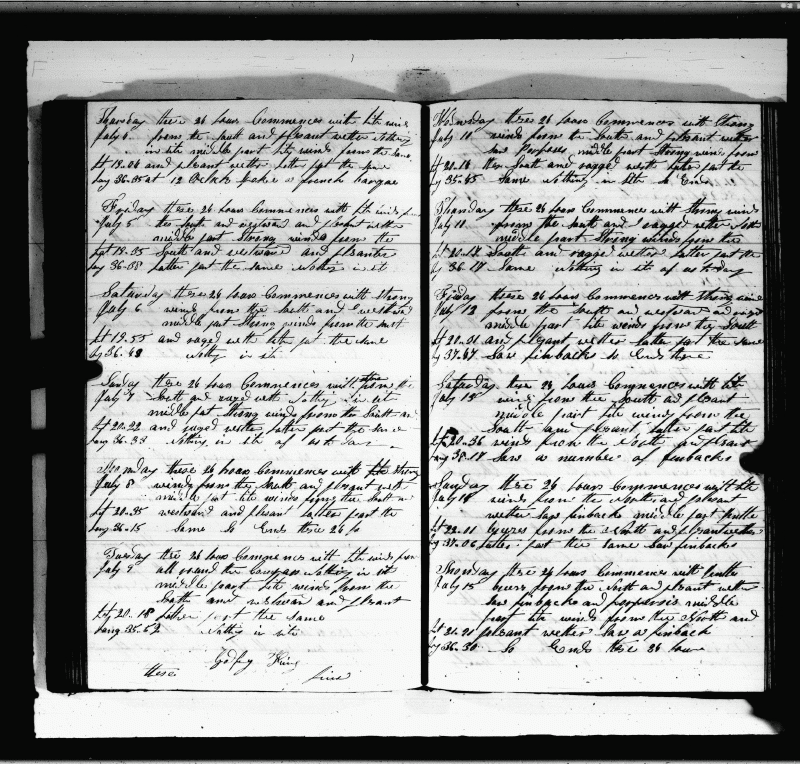 Thursday these 24 hours Commences with lite wind
July 4 from the South and plesant wether nothing
in site middle part lite winds from the same
Lat 19.04 and plesant wether latter part the same
Long 36.35 at 12 Oclock spoke a french barque
Friday these 24 hours Commences with lite winds from
July 5 the South and westward and plesant wether
middle part Strong winds from the
Lat 19.05 South and westward and plesant
Long 36.08 Latter part the same nothing in sit
Saturday these 24 hours Commences with Strong
July 6 winds from the South and westward
middle part Strong winds from the
Lat 19.55 and raged weth latter part the same
Lg 36.42 nothing in sit
Sunday these 24 hours Commences with from the
July 7 South and raged weth nothing in sit
middle part Strong winds from the South and
Lat 20.22 and raged wether latter part the same
Long 36.33 nothing in sit of us to day
Monday these 24 hours Commences with Strong
July 8 winds from the South and plesant weth
middle part lite winds from the South and
Lat 20.35 westward and plesant latter part the
Long 36.15 Same So Ends these 24 ho
Tuesday these 24 hours Commences with lite winds from
July 9 all round the Compass nothing in sit
middle part lite winds from the
South and westward and plesant
Lat 20.18 latter part the same
Long 35.52 nothing in site
Godfry King
these
Wensday these 24 hours Commences with Strong
July 10 winds from the South and plesant wether
saw porposes middle part Strong winds from
Lat 20.16 the South and raged weth latter part the
Lg 35.45 Same nothing in site So Ends
Thursday these 24 hours Commences with Strong winds
July 11 from the South and raged wether
middle part Strong winds from the
Lat 20.17 South and raged wether latter part the
Lg 36.17 Same nothing in sit of us to day
Friday these 24 hours Commences with Strong winds
July 12 from the South and westward and raged
middle part lite winds from the South
Lat 20.31 and plesant wether latter part the same
Lg 37.47 Saw finbacks So Ends these
Saturday these 24 hours Commences with lite
July 13 winds from the South and plesant
middle part lite winds from the
South and plesant latter part lite
Lat 20.36 winds from the South and plesant
Long 38.18 Saw a number of finbacks
Sunday these 24 hours Commences with lite
July 14 winds from the North and plesant
wether Saw finbacks middle part
Lat 22.11 from the North and plesant wether
Lg 37.06 latter part the same Saw finbacks
Monday these 24 hours Commences with
July 15 from the North and plesant wether
Saw finbacks and porposes middle
part lite winds from the North and
Lat 21.21 plesant wether saw a finback
Lg 36.30 So Ends these 24 hours